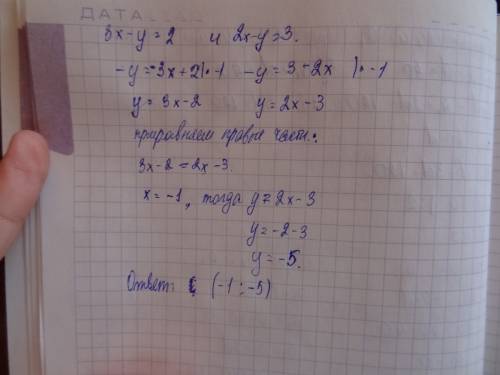 ДАТА
3x-y=2 и 2x-y=3.
-y=-3x+2|·-1 -y=3-2x |·-1
y=3x-2 y=2x-3
приравняем правые части:
3x-2=2x-3.
x=-1, тогда y=2x-3
y=-2-3
y=-5.
Ответ: (-1;-5)